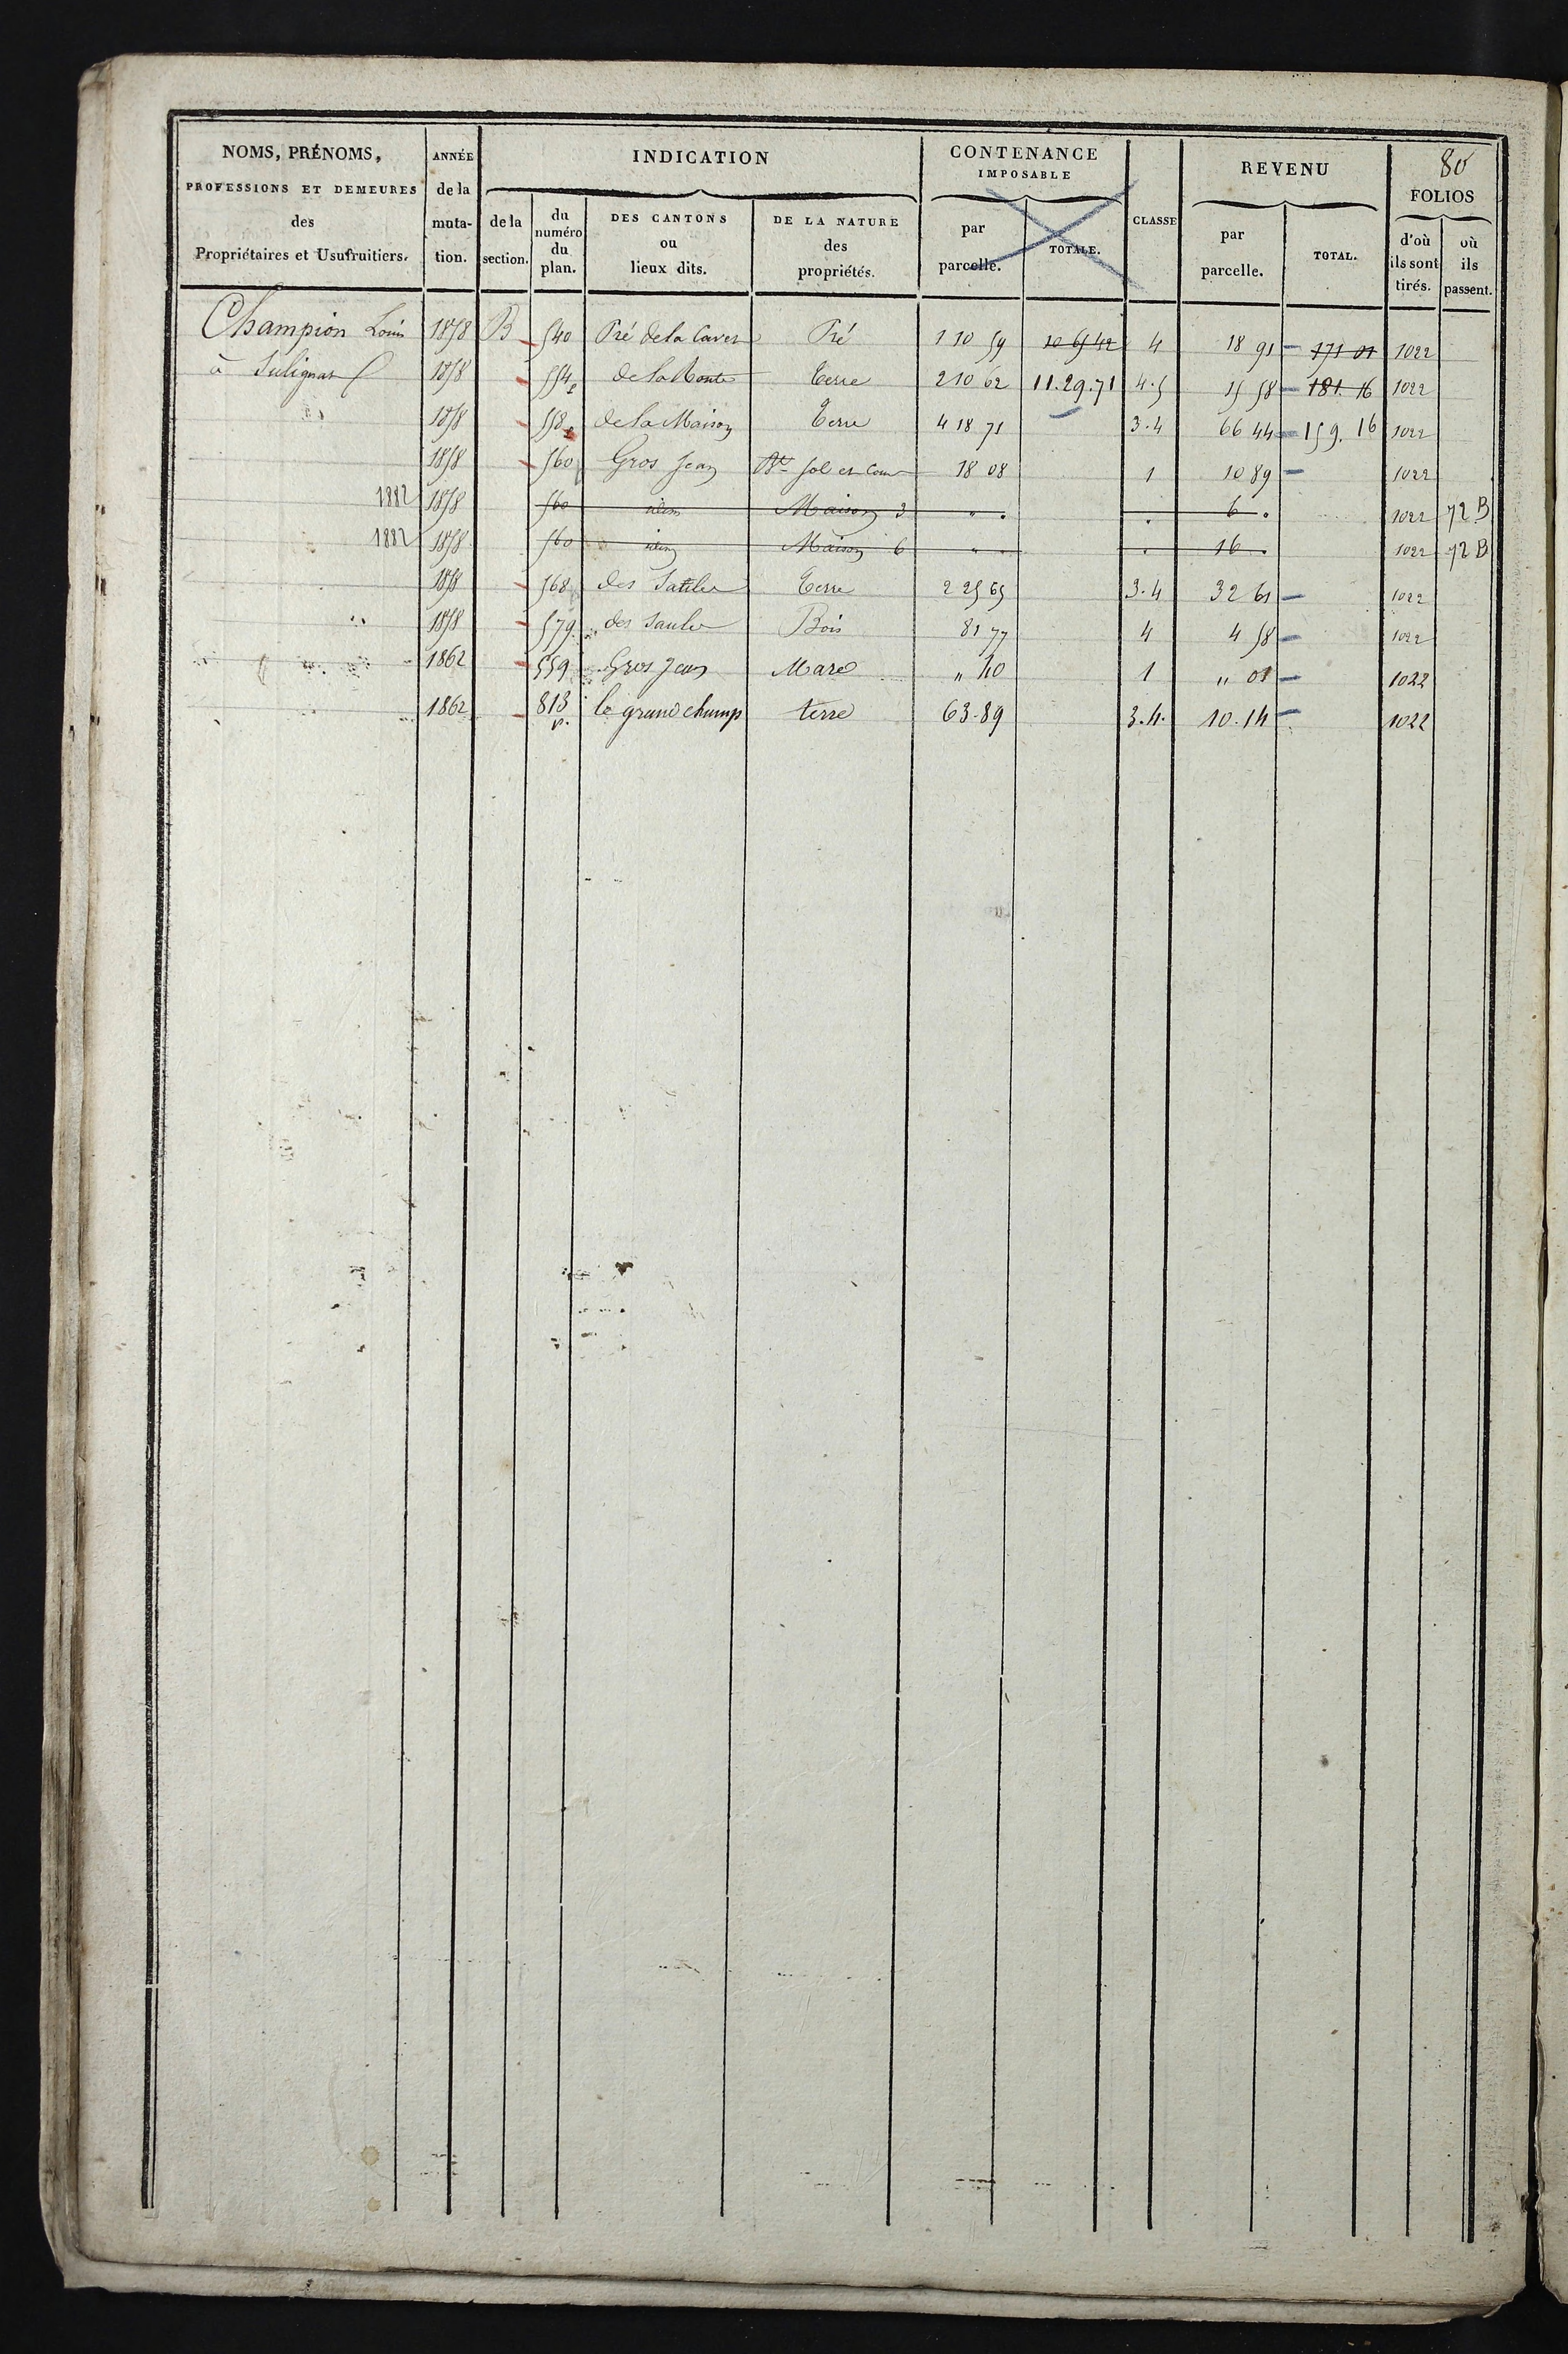 80
NOMS, PRÉNOMS, PROFESSIONS ET DEMEURES des Propriétaires et Usufruitiers.
ANNÉE de la muta- tion.
INDICATION
de la section.
du numéro du plan.
DES CANTONS ou lieux dits.
DE LA NATURE des propriétés.
CONTENANCE IMPOSABLE
par parcelle.
TOTALE.
CLASSE
REVENU
par parcelle.
TOTAL.
FOLIOS
d'où ils sont tirés.
où ils passent.
Champion Louis 1858 B 540 Pré de la Caver Pré 1 10 59 10 65 42 4 18 91 171 01 1022
à Sulignat 1858 554p de la Route Terre 2 10 62 11.29.71 4.5 15 58 181.16 1022
1858 558p de la Maison Terre 4 18 71 3.4 66 44 159.16 1022
1858 560 Gros Jean Bt sol et Cour 18 08 1 10 89 1022
1882 1858 560 idem Maison 3 " . . 6 . 1022 72 B
1882 1858 560 idem Maison 6 " . . 16 . 1022 72 B
1858 568 des Terre 2 25 65 3.4 32 61 1022
1858 579 des Saules Bois 81 77 4 4 58 1022
1862 559 Gros Jean Mare " 40 1 " 01 1022
1862 813 p. le grand champ terre 63.89 3.4. 10.14 1022